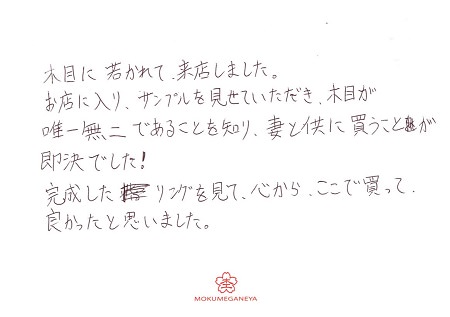 木目に若かれて、来店しました。
お店に入り、サンプルを見せていただき、木目が
唯一無二であることを知り、妻と供に買うことが
即決でした!
完成したリングを見て、心から、ここで買って、
良かったと思いました。
MOKUMEGANEYA